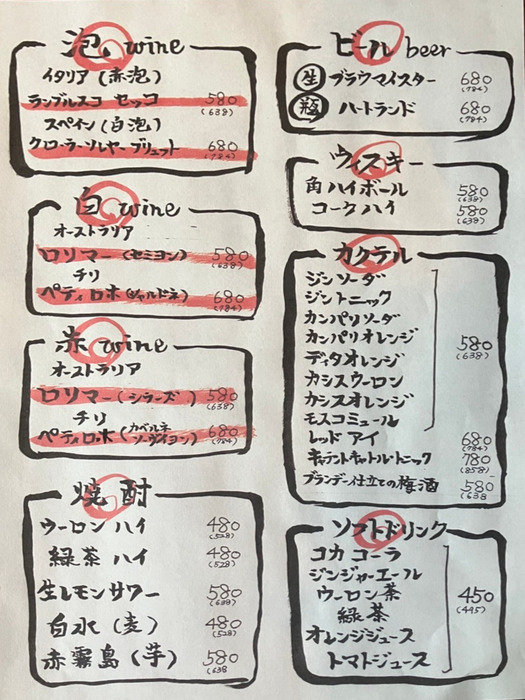 泡 wine
イタリア(赤泡)
ランブルスコ セッコ 580
(638)
スペイン(白泡)
クロ・ラ・ソレヤ・ブリュット 680
(784)
白 wine
オーストラリア
ロリマー(セミヨン) 580
(638)
チリ
ペティロホ(シャルドネ) 680
(784)
赤 wine
オーストラリア
ロリマー(シラーズ) 580
(638)
チリ
ペティロホ(カベルネソーヴィヨン) 680
(784)
焼酎
ウーロンハイ 480
(528)
緑茶ハイ 480
(528)
生レモンサワー 580
(638)
白水(麦) 480
(528)
赤霧島(芋) 580
(638
ビール beer
生 ブラウマイスター 680
(784)
瓶 ハートランド 680
(784)
ウィスキー
角ハイボール 580
(638)
コークハイ 580
(638)
カクテル
ジンソーダ
ジントニック
カンパリソーダ
カンパリオレンジ
ディタオレンジ
カシスウーロン
カシスオレンジ
モスコミュール
580
(638)
レッドアイ 680
(784)
780
(858)
ブランデー仕立ての梅酒 580
(638
ソフトドリンク
コカコーラ
ジンジャーエール
ウーロン茶
緑茶
オレンジジュース
トマトジュース
450
(495)